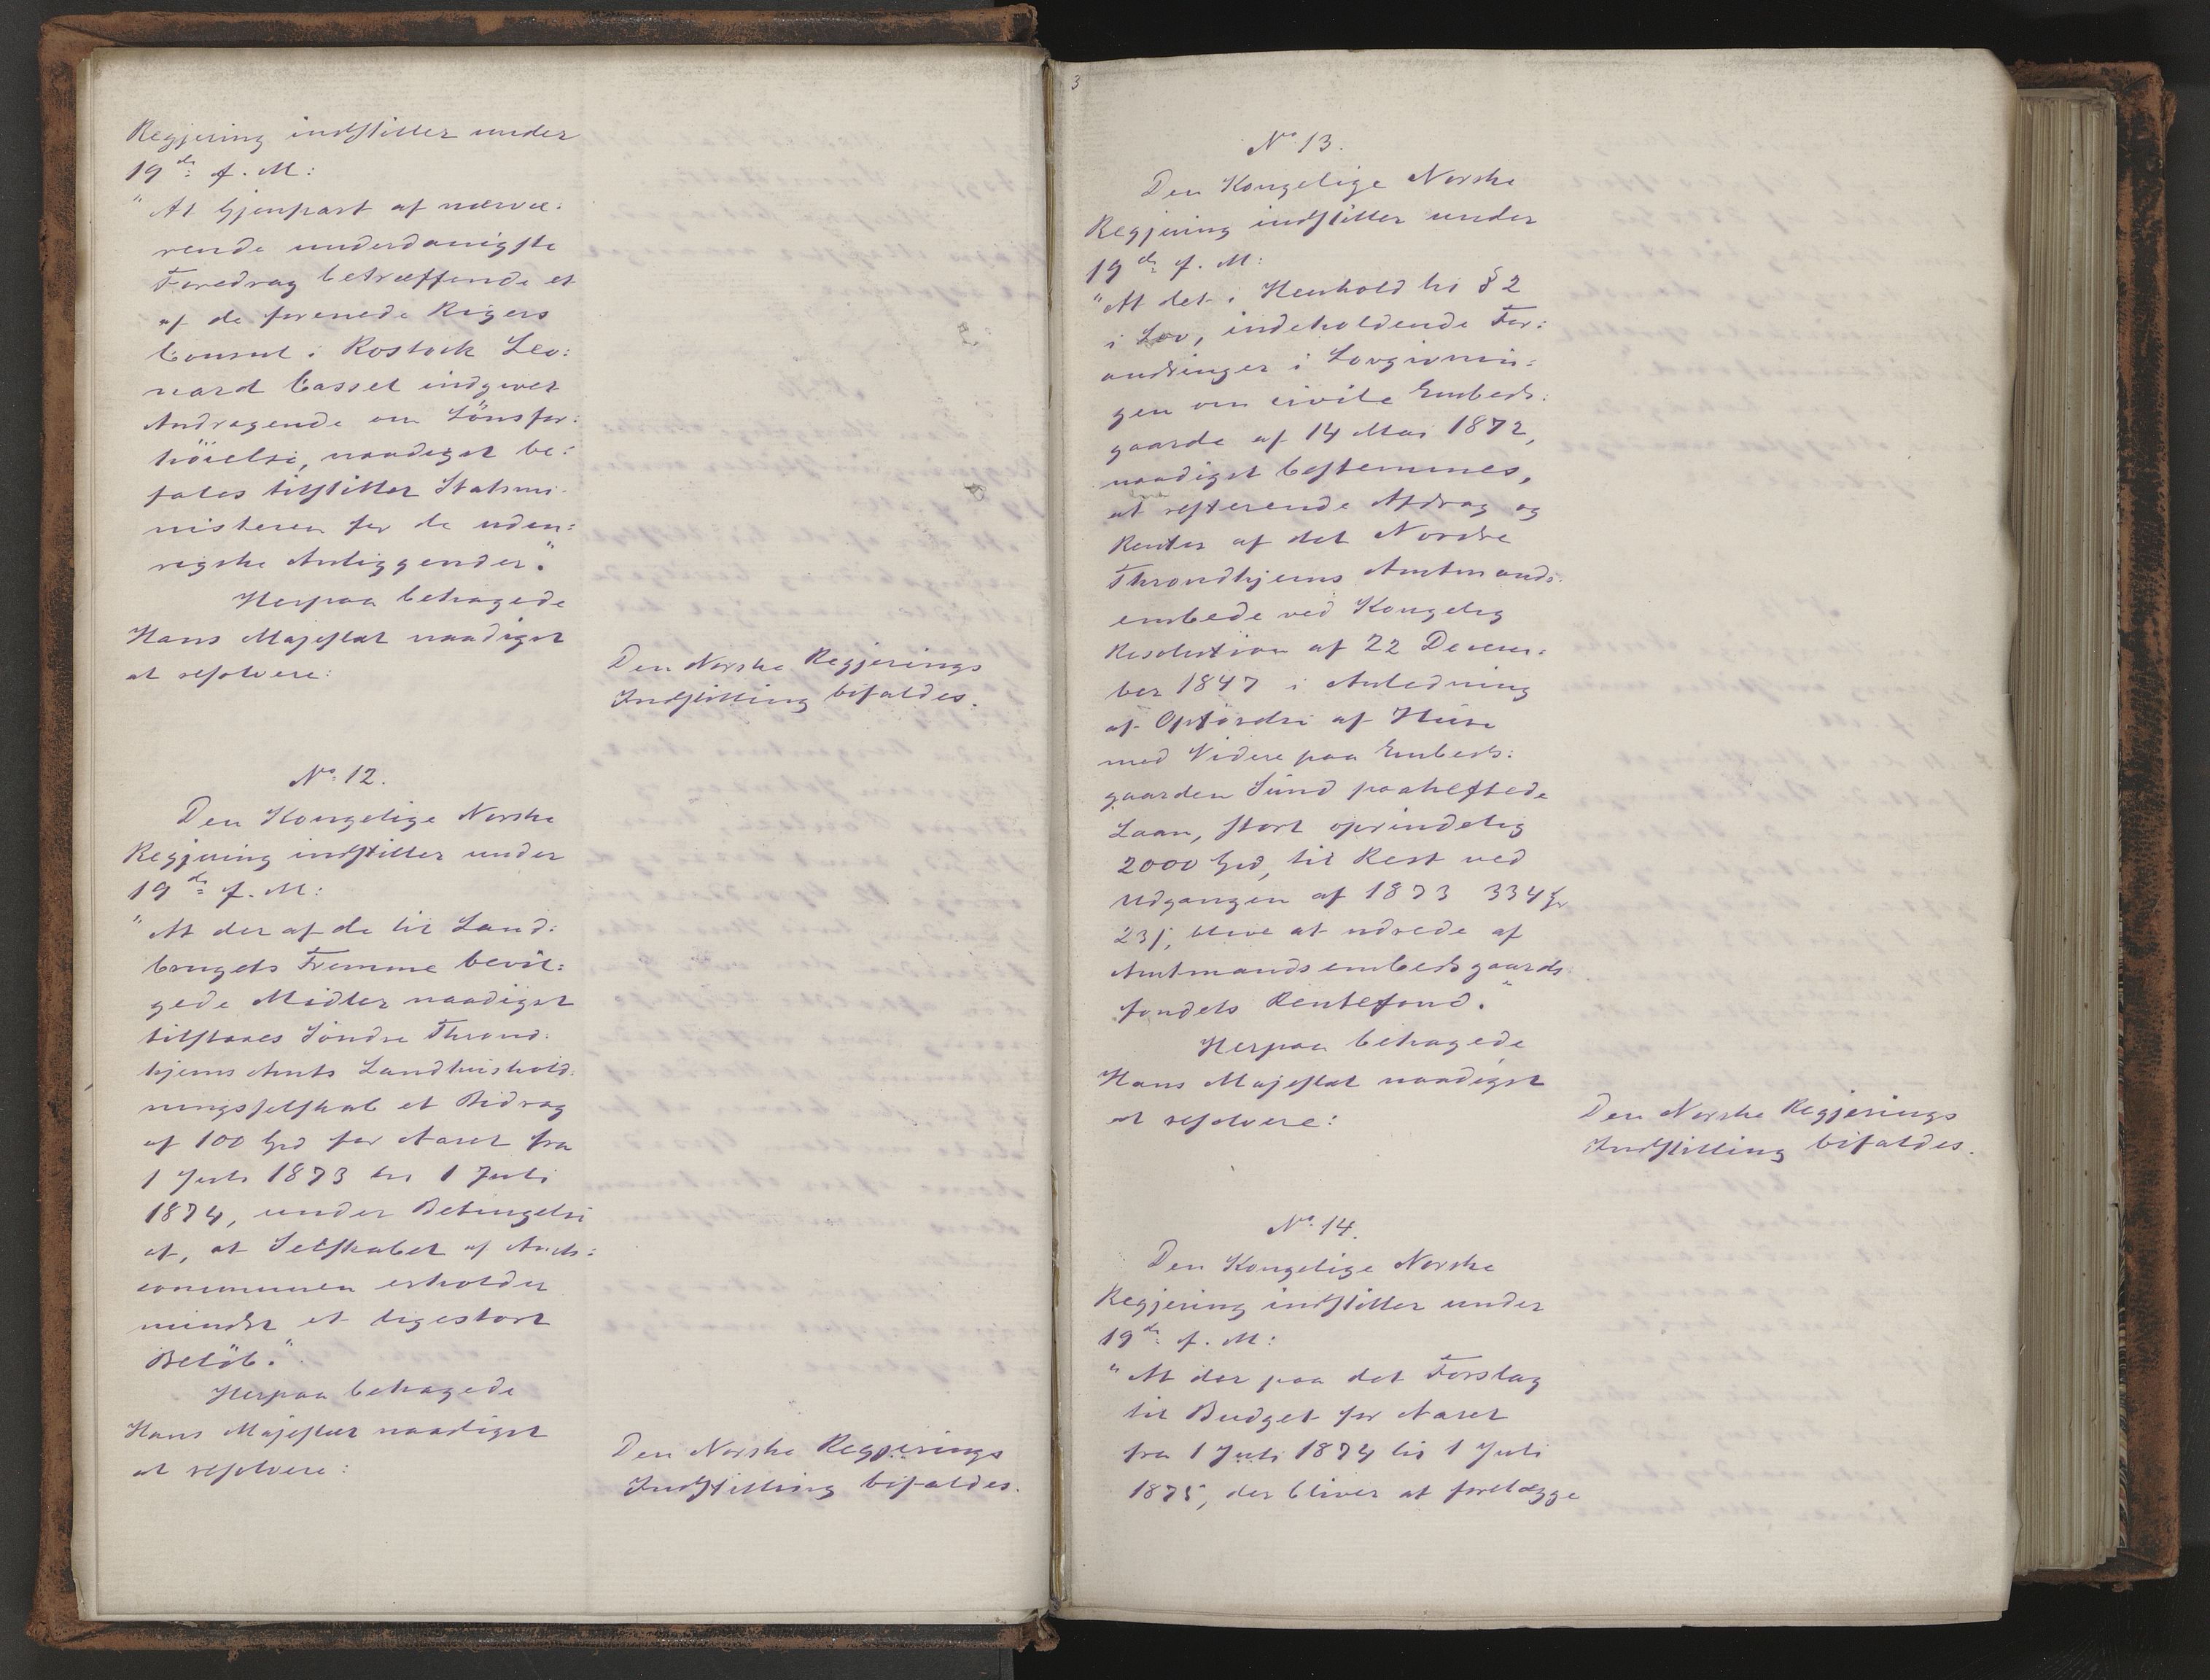 Regjering indstiller under
19de f. M:
"At Gjenpart af nærvæ:
rende underdanigste
Foredrag betræffende et
af de forenede Rigers
Consul i Rostock Leo:
nard Cassel indgivet
Andragende om Lønsfor:
høielse, naadigst be:
fales tilstillet Statsmi:
nisteren for de uden:
rigske Anliggender."
Herpaa behagede
Hans Majestæt naadigst
at resolvere:
Den Norske Regjerings
Indstilling bifaldes.
No. 12.
Den Kongelige Norske
Regjering indstiller under
19de f. M:
"At der af de til Land:
brugets Fremme bevil:
gede Midler naadigst
tilstaaes Söndre Thrond:
hjems Amts Landhuushold:
ningsselskab et Bidrag
af 100 Spd for Aaret fra
1 Juli 1873 til 1 Juli
1874, under Betingelse
af, at Selskabet af Amts:
communen erholder
mindst et ligestort
Belöb."
Herpaa behagede
Hans Majestæt naadigst
at resolvere:
Den Norske Regjerings
Indstilling bifaldes.
3
No 13.
Den Kongelige Norske
Regjering indstiller under
19de f. M:
"At det i Henhold til § 2
i Lov, indeholdende For:
andringer i Lovgivnin:
gen om civile Embeds:
gaarde af 14 Mai 1872,
naadigst bestemmes,
at resterende Afdrag og
Renter af det Nordre
Throndhjems Amtmands:
embede ved Kongelig
Resolution af 22 Decem:
ber 1847 i Anledning
af Opförelse af Huse
med Videre paa Embeds:
gaarden Sund paaheftede
Laan, stort oprindelig
2000 Spd, til Rest ved
Udgangen af 1873 334 Spd
23 s, blive at udrede af
Amtmandsembedsgaards:
fondets Rentefond."
Herpaa behagede
Hans Majestæt naadigst
at resolvere:
Den Norske Regjerings
Indstilling bifaldes.
No. 14.
Den Kongelige Norske
Regjering indstiller under
19de f. M:
"At der paa det Forslag
til Budget for Aaret
fra 1 Juli 1874 til 1 Juli
1875, der bliver at forelægge